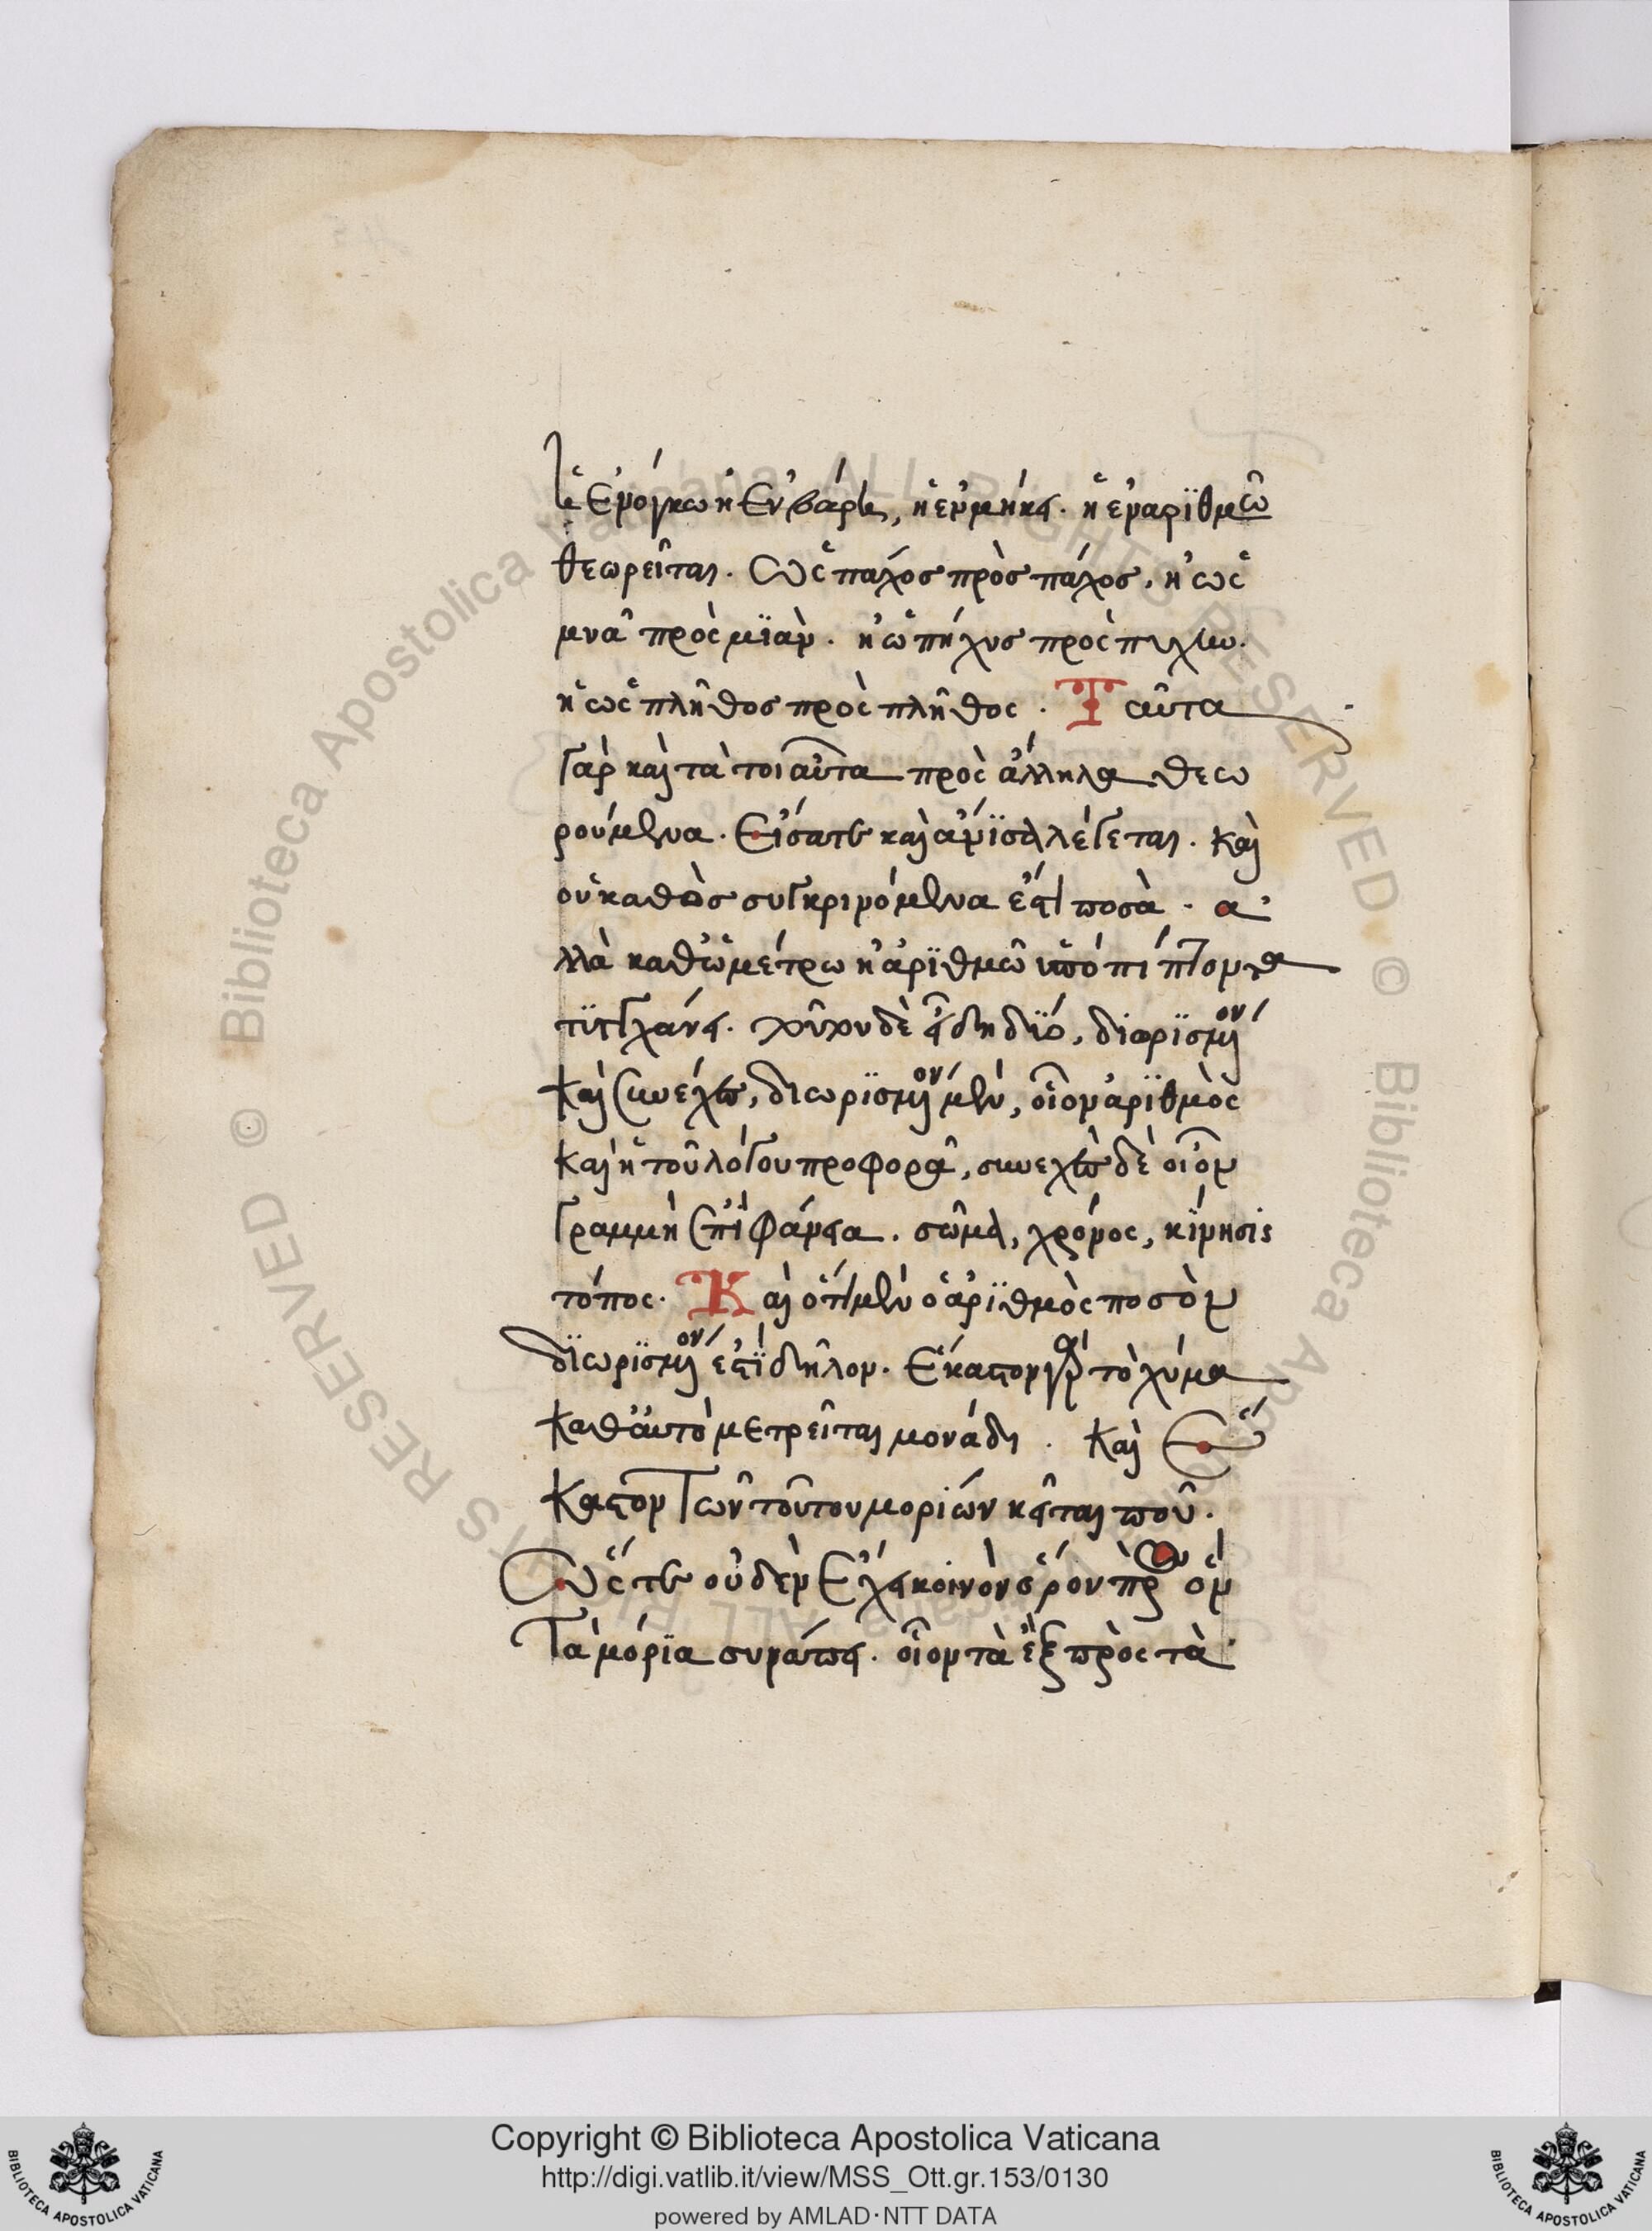 ἢ ἐν ὄγκω ἢ ἐν βάρει, ἢ ἐν μήκει. ἢ ἐν ἀρϊθμῶ
θεωρεῖται. ὡς πάχος πρὸς πάχος, ἢ ὡς
μνᾶ πρὸς μϊὰν. ἢ ὡ πήχυς πρὸς πιχυν.
ἢ ὡς πλῆθος πρὸς πλῆθος. Ταῦτα
γὰρ καὶ τὰ τοιαῦτα πρὸς ἄλληλα θεω
ρούμενα. εἴσατε καὶ ἄνϊσα λέγεται. καὶ
οὐ καθὼς συγκρινόμενα ἐστὶ ποσὰ. ἀ
λλὰ καθὼ μέτρω ἢ ἀρϊθμῶ ὑπόπίπτοντα
τϋγχάνει. δὲ εἴδη δϊό, διορϊσμένον
καὶ συνεχὲς, διωρϊσμένον μὲν, οἷον ἀρϊθμὸς
καὶ ἡ τοῦ λόγου προφορᾶ, συνεχὲς δὲ οἷον
γραμμὴ ἐπϊφάνεια. σῶμα, χρόνος, κίνησις
τόπος. Καὶ ὅτι μὲν ὁ ἀρϊθμὸς ποσὸν
δϊωρϊσμένον ἐστϊ δῆλον. ἕκαστον γὰρ τὸ χύμα
καθ' αὑτὸ μετρεῖται μονάδι. καὶ ἕ
καστον τῶν τούτου μορίων κεῖται ποῦ.
ὥστε οὐδὲν ἔχει κοινὸν ὅρον πρὸς ὃν
τὰ μόρϊα συνάπτει. οἷον τὰ ἓξ πρὸς τὰ
Copyright © Biblioteca Apostolica Vaticana
http://digi.vatlib.it/view/MSS_Ott.gr.153/0130
powered by AMLAD·NTT DATA
BIBLIOTECA APOSTOLICA VATICANA
BIBLIOTECA APOSTOLICA VATICANA